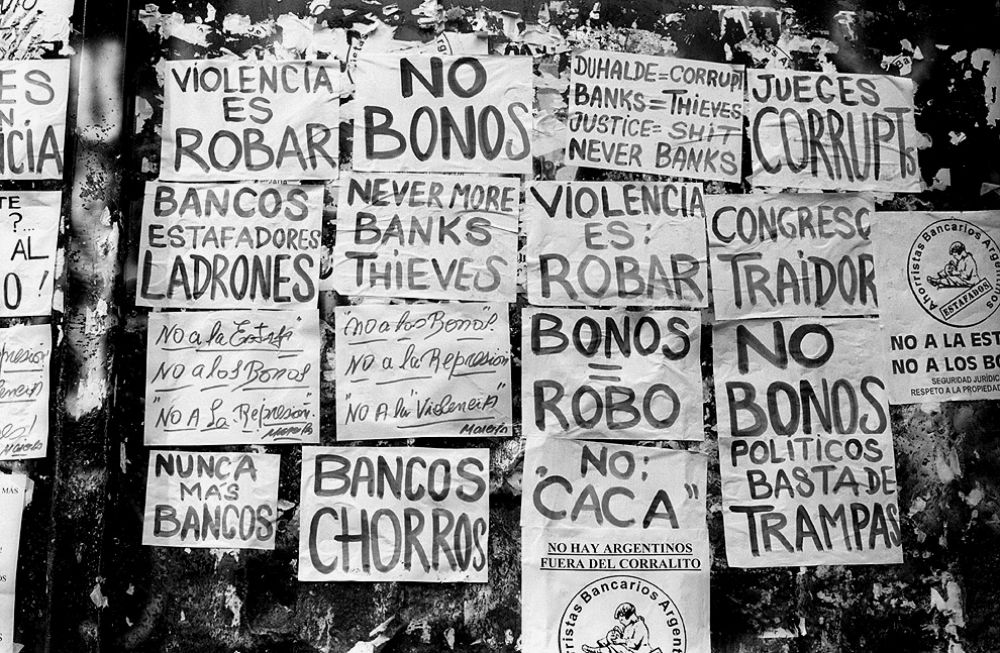 VIOLENCIA
ES
ROBAR
NO
BONOS
DUHALDE=CORRUPT
BANKS=THIEVES
JUSTICE=SHIT
NEVER BANKS
JUECES
CORRUPTS
ES
N
NCIA
BANCOS
ESTAFADORES
LADRONES
NEVER MORE
BANKS
THIEVES
VIOLENCIA
ES:
ROBAR
CONGRESO
TRAIDOR
TE
?...
AL
O!
Ahorristas Bancarios Argen
ESTAFADOS
NO A LA EST
NO A LOS BO
SEGURIDAD JURÍDIC
RESPETO A LA PROPIEDA
"NO a la Estafa"
"NO a los Bonos"
"NO A La Represion".
Mareita
"NO a los Bonos".
NO a la Represion
"NO A la "Violencia
Mareita
BONOS
=
ROBO
NO
BONOS
POLITICOS
BASTA DE
TRAMPAS
presion
encia
Mareita
NUNCA
MAS
BANCOS
BANCOS
CHORROS
NO:
"CACA"
NO HAY ARGENTINOS
FUERA DEL CORRALITO
orristas Bancarios Argent
MÁS